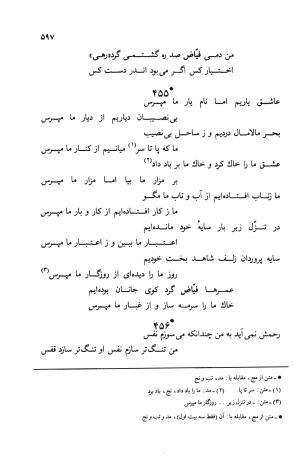 ۵۹۷
من دمی فیّاض صد ره گشتمی گرد «رهی»
اختیار کس اگر می‌بود اندر دست کس
*۴۵۵
عاشق یاریم اما نام یار ما مپرس
بی‌نصیبان دیاریم از دیار ما مپرس
بحر مالامال دردیم و ز ساحل بی‌نصیب
ما که پا تا سر(۱) میانیم از کنار ما مپرس
عشق ما را خاک کرد و خاک ما بر باد داد(۲)
بر مزار ما بیا اما مزار ما مپرس
ما زتاب افتاده‌ایم از آب و تاب ما مگو
ما ز کار افتاده‌ایم از کار و بار ما مپرس
در تنزّل زیر بار سایهٔ خود مانده‌ایم
اعتبار ما ببین و ز اعتبار ما مپرس
سایه پروردان زلف شاهد بخت خودیم
روز ما را دیده‌ای از روزگار ما مپرس(۳)
عمرها فیّاض گرد کوی جانان بوده‌ایم
خاک ما را سرمه ساز و از غبار ما مپرس
*۴۵۶
رحمش نمی‌آید به من چندانکه می‌سوزم نفس
من تنگ‌تر سازم نفس او تنگ‌تر سازد قفس
* ـ متن از مج، مقابله با: مد، تب و نج
(۱) ـ متن: سر تا پا (۲) ـ مد: ما را باد داد، نج، باد برد
(۳) ـ متن: ـ در تنزل زیر... روزگار ما مپرس
* ـ متن از مج، مقابله با: آن (فقط سه بیت اول)، مد و تب و نج